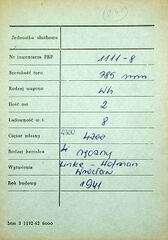 Jednostka służbowa
Nr inwentarza PKP 1111-8
Szerokość toru 785 mm
Rodzaj wagonu Wh
Ilość osi 2
Ładowność w t. 8
Ciężar własny 4200 4200
Rodzaj hamulca ręczny
Wytwórnia Linke - Hofman
Wrocław
Rok budowy 1941